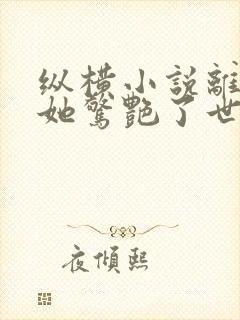 纵横小说離
她驚艷了世
夜傾熙